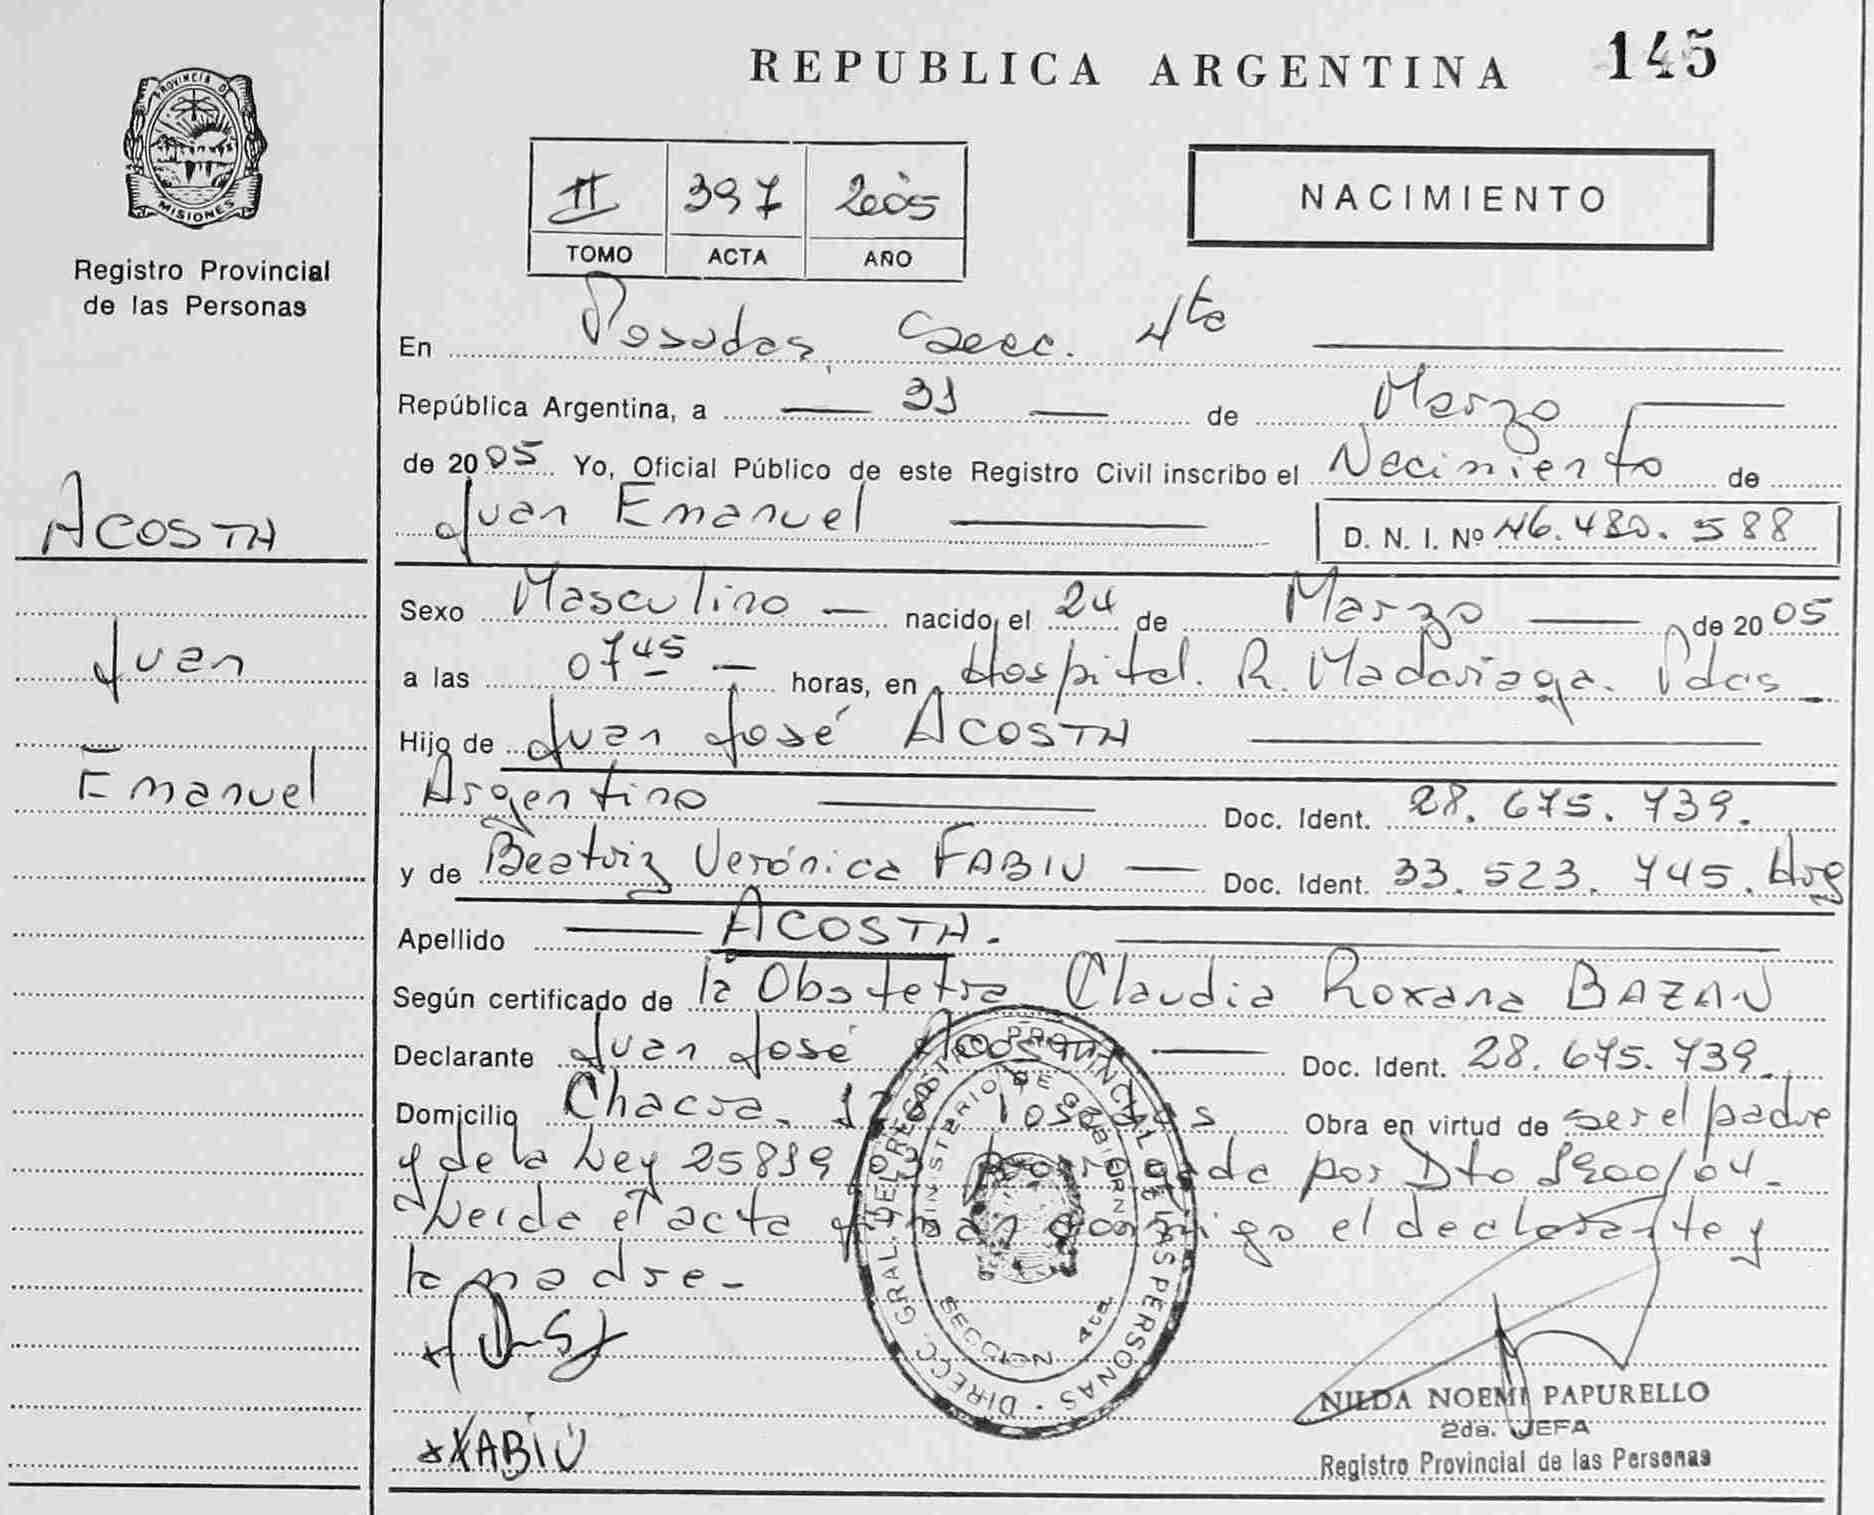 REPUBLICA ARGENTINA 145
PROVINCIA DE
MISIONES
Registro Provincial
de las Personas
II 397 2005
TOMO ACTA AÑO
NACIMIENTO
En Posadas, Secc. 4ta
República Argentina, a 31 de Marzo
de 2005 Yo, Oficial Público de este Registro Civil inscribo el Nacimiento de
Juan Emanuel D. N. I. Nº 46.480.588
ACOSTA
Juan
Emanuel
Sexo Masculino nacido el 24 de Marzo de 2005
a las 0745 horas, en Hospital. R. Madariaga. Pdas
Hijo de Juan José ACOSTA
Argentino Doc. Ident. 28.675.739.
y de Beatriz Verónica FABIU Doc. Ident. 33.523.745. Arg
Apellido ACOSTA.
Según certificado de la Obstetra Claudia Roxana BAZAN
Declarante Juan José Acosta Doc. Ident. 28.675.739.
Domicilio Chacra. Posadas Obra en virtud de ser el padre
y de la Ley 25819/03 prorrogada por Dto 1900/04.
Leida el acta firman conmigo el declarante y
la madre-
DIRECC. GRAL. DEL REGISTRO PROVINCIAL DE LAS PERSONAS
MINISTERIO DE GOBIERNO
SECCION 4ta
XABIU
NILDA NOEMI PAPURELLO
2da. JEFA
Registro Provincial de las Personas